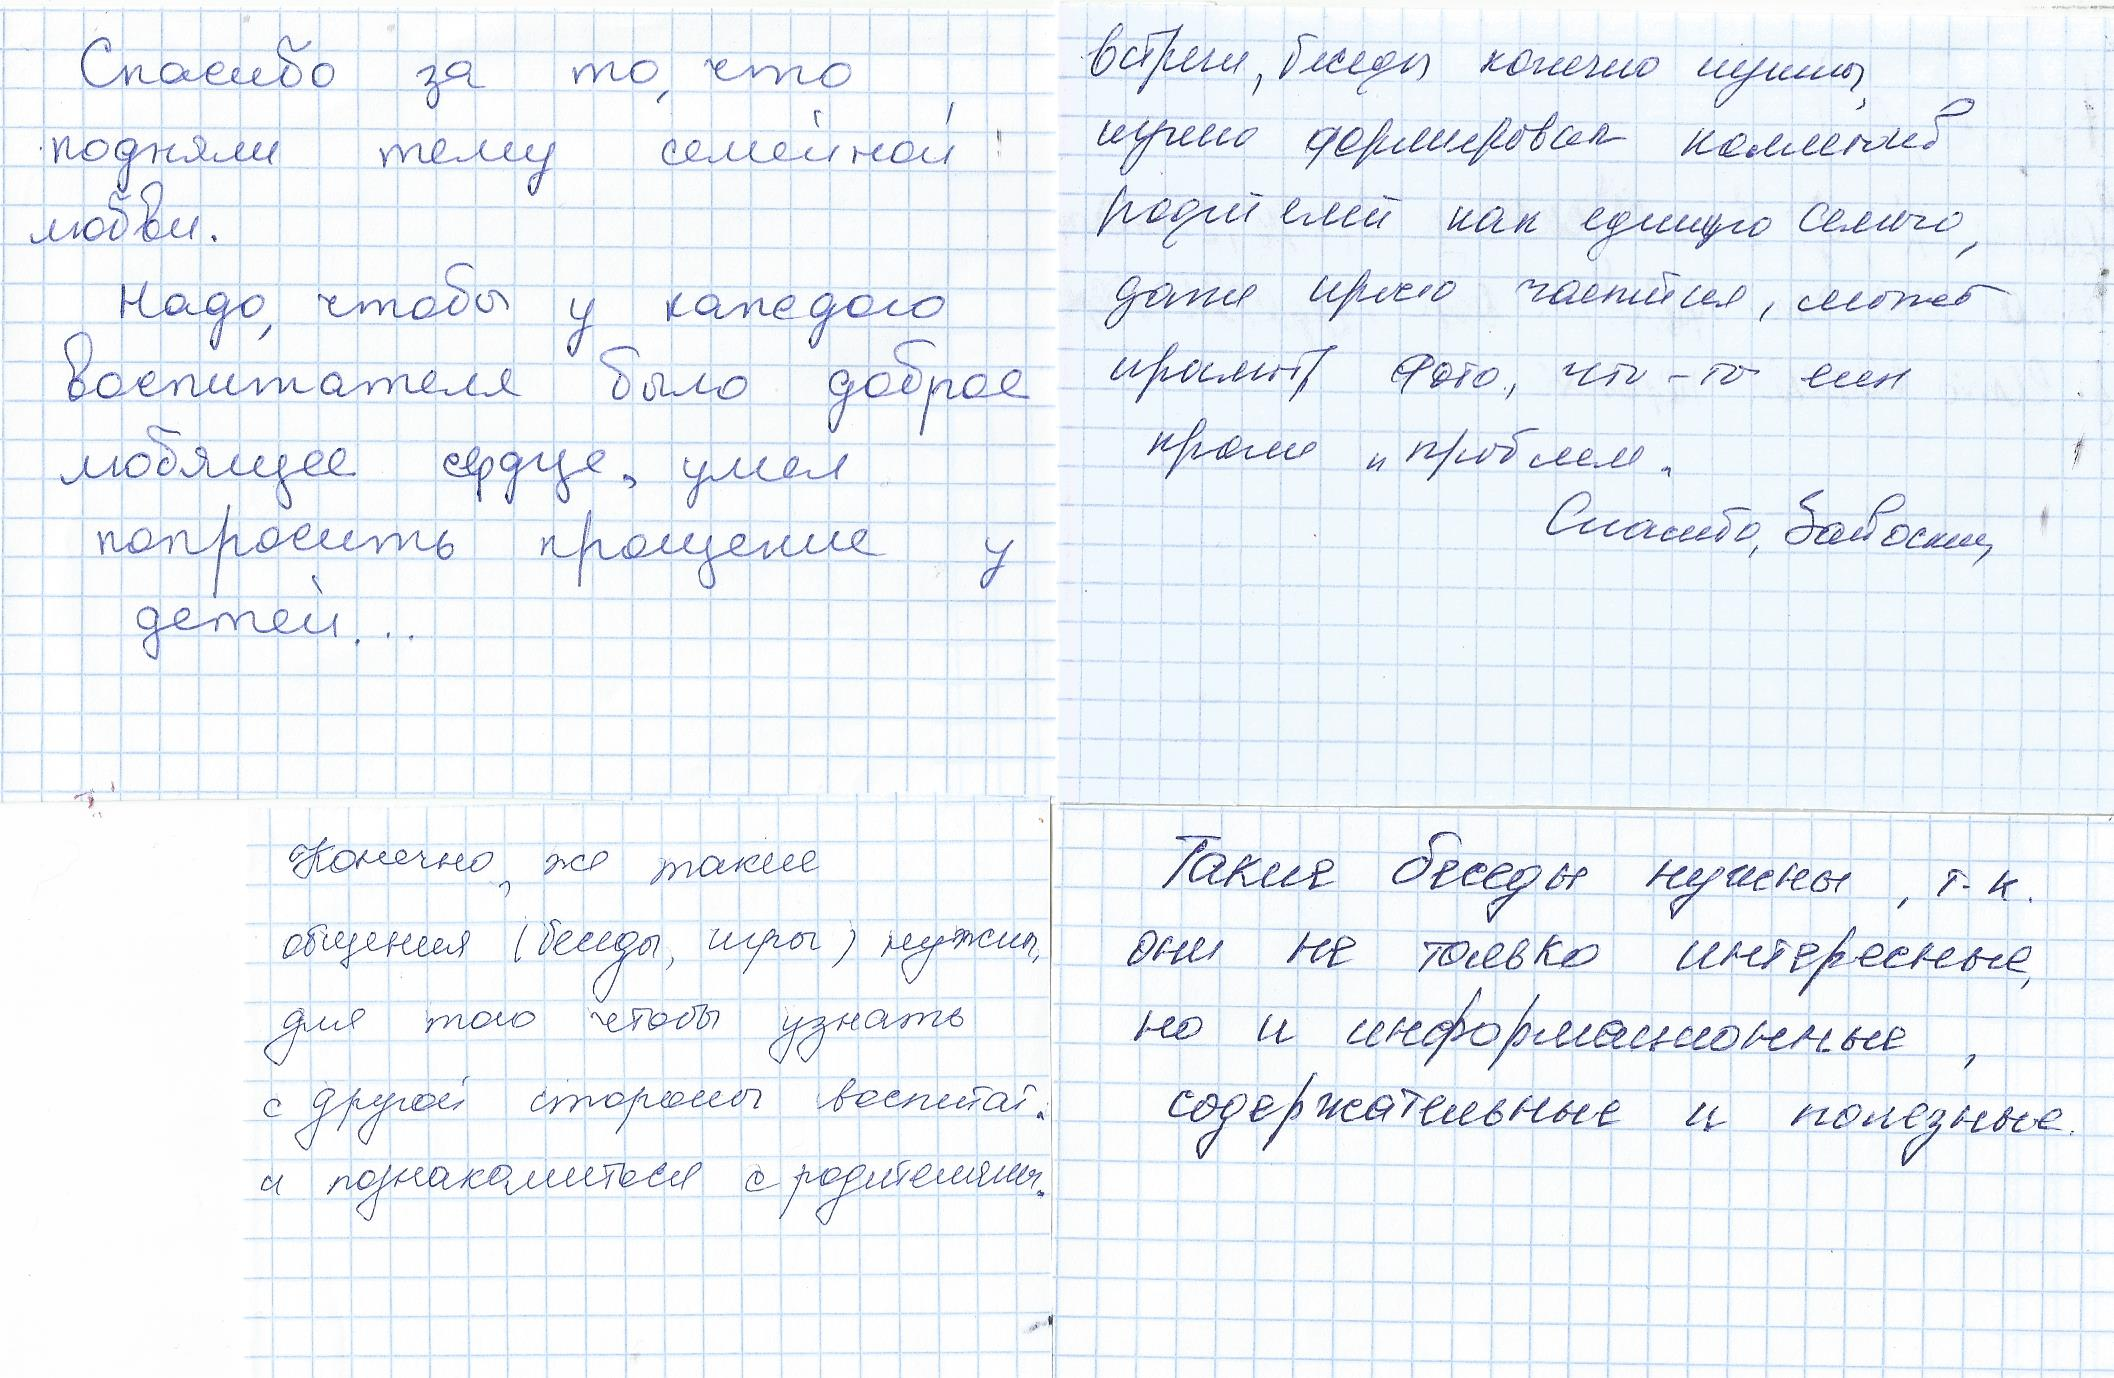 Спасибо за то, что
подняли тему семейной
любви.
Надо, чтобы у каждого
воспитателя было доброе
любящее сердце, умел
попросить прощение у
детей...
встречи, беседы конечно нужны,
нужно формировать коллектив
родителей как единую семью,
даже просто чаепития, может
фото, что-то
кроме "проблем.
Спасибо,
Конечно, же такие
общения (беседы, игры) нужны,
для того чтобы узнать
с другой стороны воспитат.
и познакомиться с родителями.
Такие беседы нужны, т-к.
они не только интересные,
но и информационные,
содержательные и полезные.